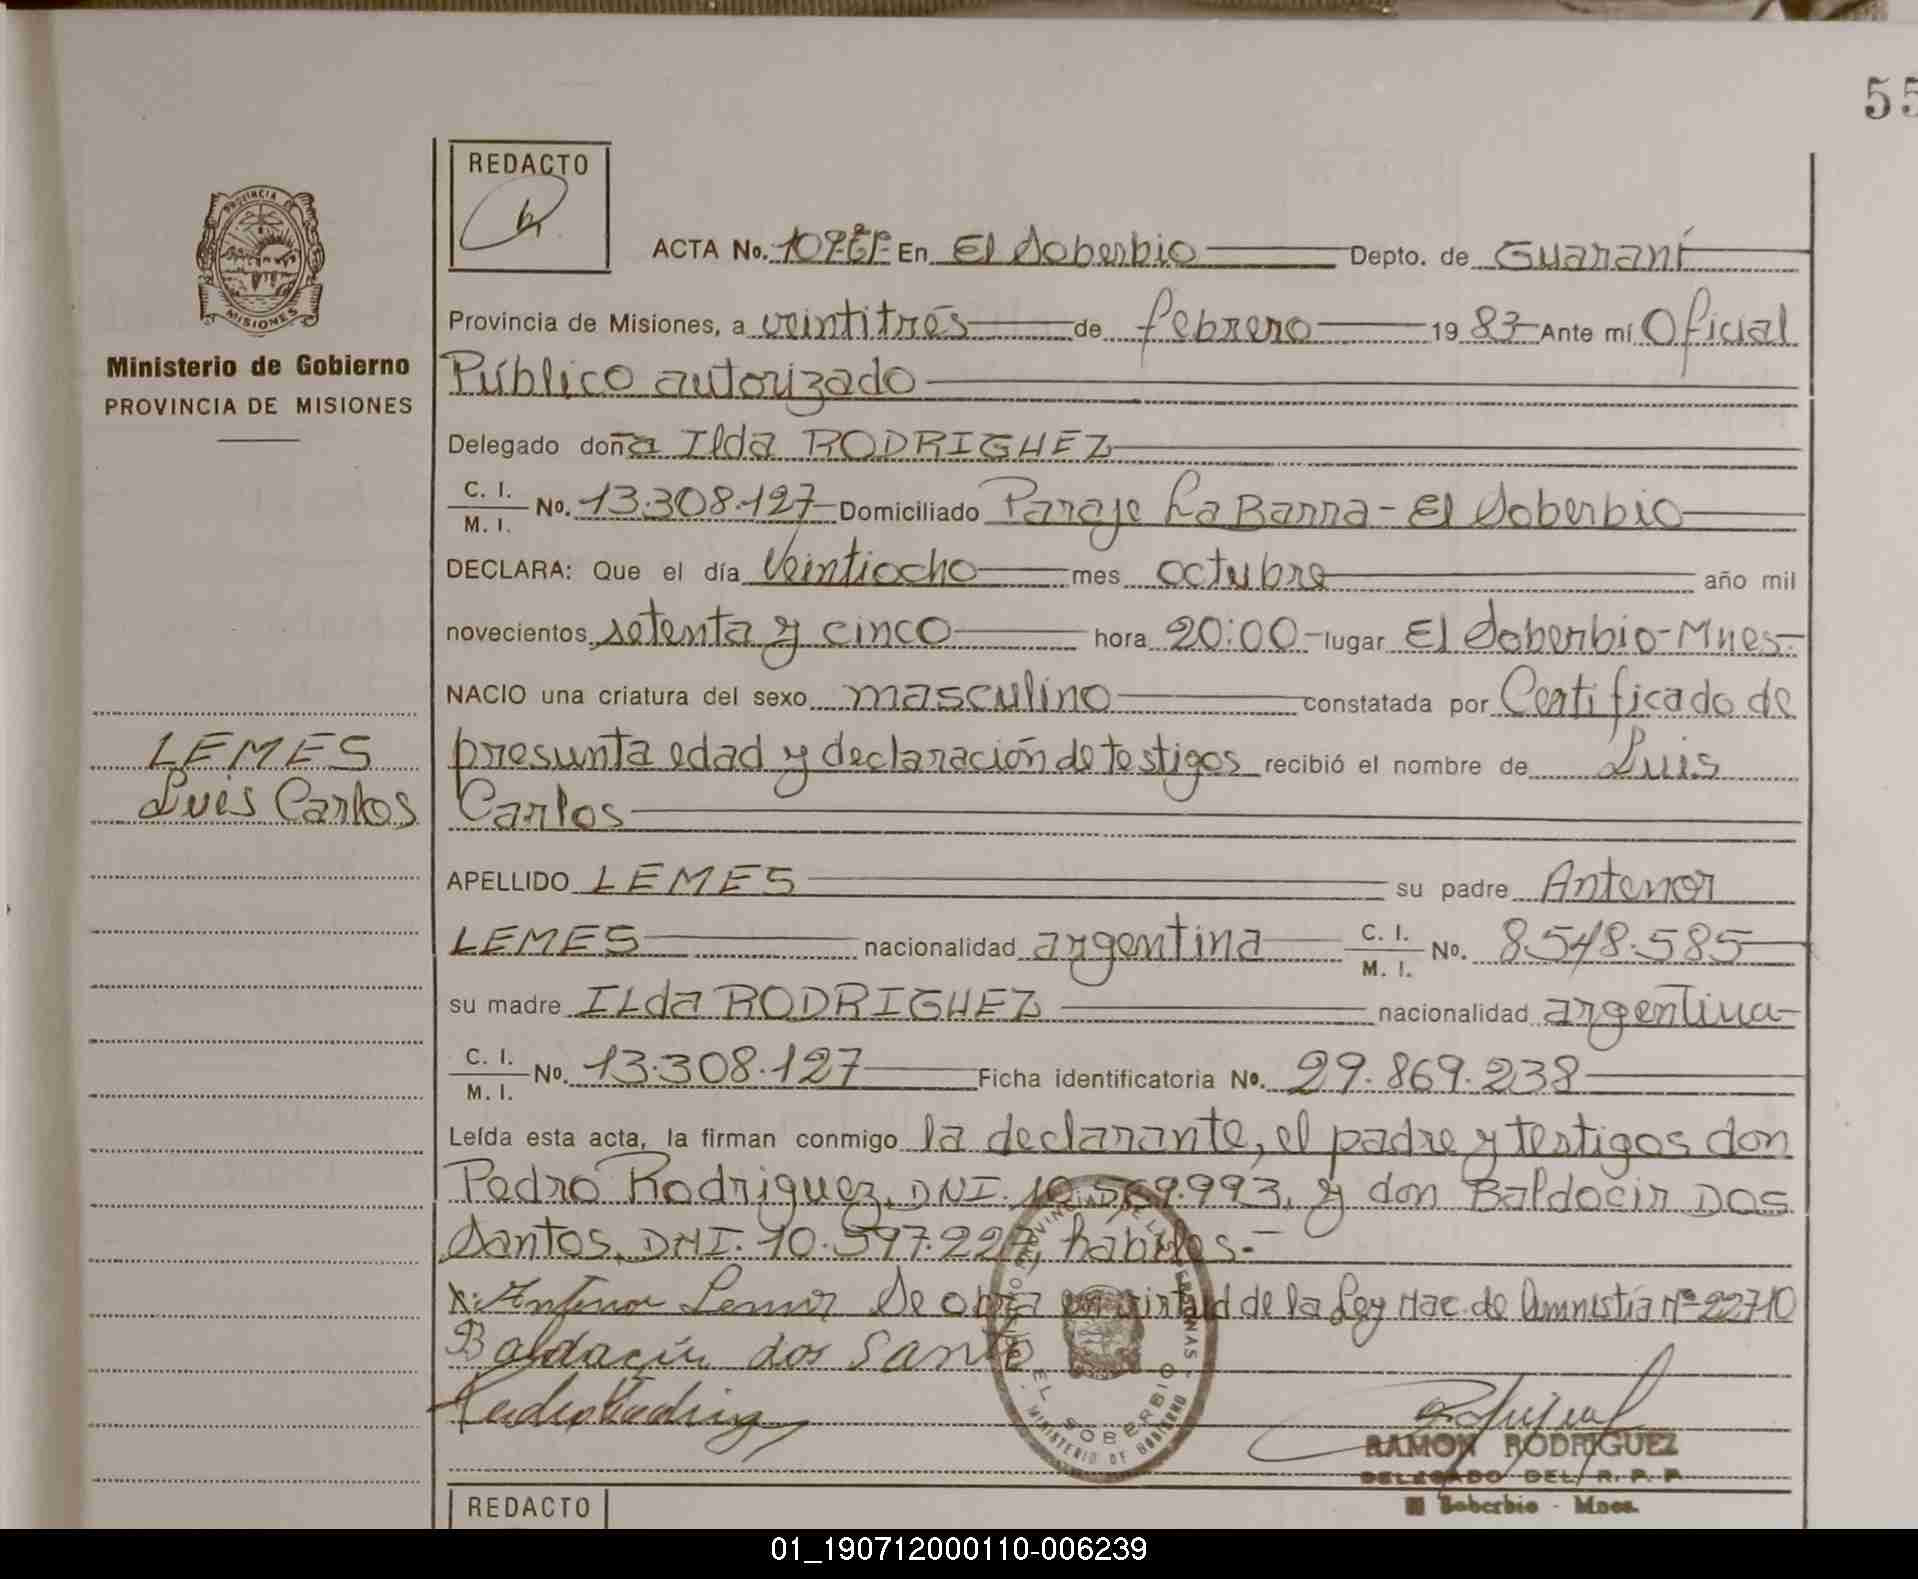 55
REDACTO
ACTA No. En El Soberbio Depto. de Guaraní
Provincia de Misiones, a veintitrés de febrero 1983 Ante mí Oficial
Público autorizado
Delegado doña Ilda RODRIGUEZ
C. I. M. I. No. 13.308.127 Domiciliado Paraje La Barra - El Soberbio
DECLARA: Que el día Veintiocho mes octubre año mil
novecientos setenta y cinco hora 20:00 lugar El Soberbio-Mnes-
NACIO una criatura del sexo masculino constatada por Certificado de
presunta edad y declaración de testigos recibió el nombre de Luis
Carlos
APELLIDO LEMES su padre Antenor
LEMES nacionalidad argentina C. I. M. I. No. 8.548.585
su madre ILda RODRIGUEZ nacionalidad argentina
C. I. M. I. No. 13.308.127 Ficha identificatoria No. 29.869.238
Leída esta acta, la firman conmigo la declarante, el padre y testigos don
Pedro Rodriguez, DNI. 10.569.993, y don Baldocir DOS
Santos, DNI. 10.597.227, habiles.-
Antenor Lemes Se obra en virtud de la Ley Nac. de Amnistía Nº 22710
Baldacir dos Santo
RAMON RODRIGUEZ
DELEGADO DEL R. P. P.
El Soberbio - Mnes.
PROVINCIA DE
MISIONES
Ministerio de Gobierno
PROVINCIA DE MISIONES
LEMES
Luis Carlos
EL SOBERBIO
MINISTERIO DE GOBIERNO
REDACTO
01_190712000110-006239